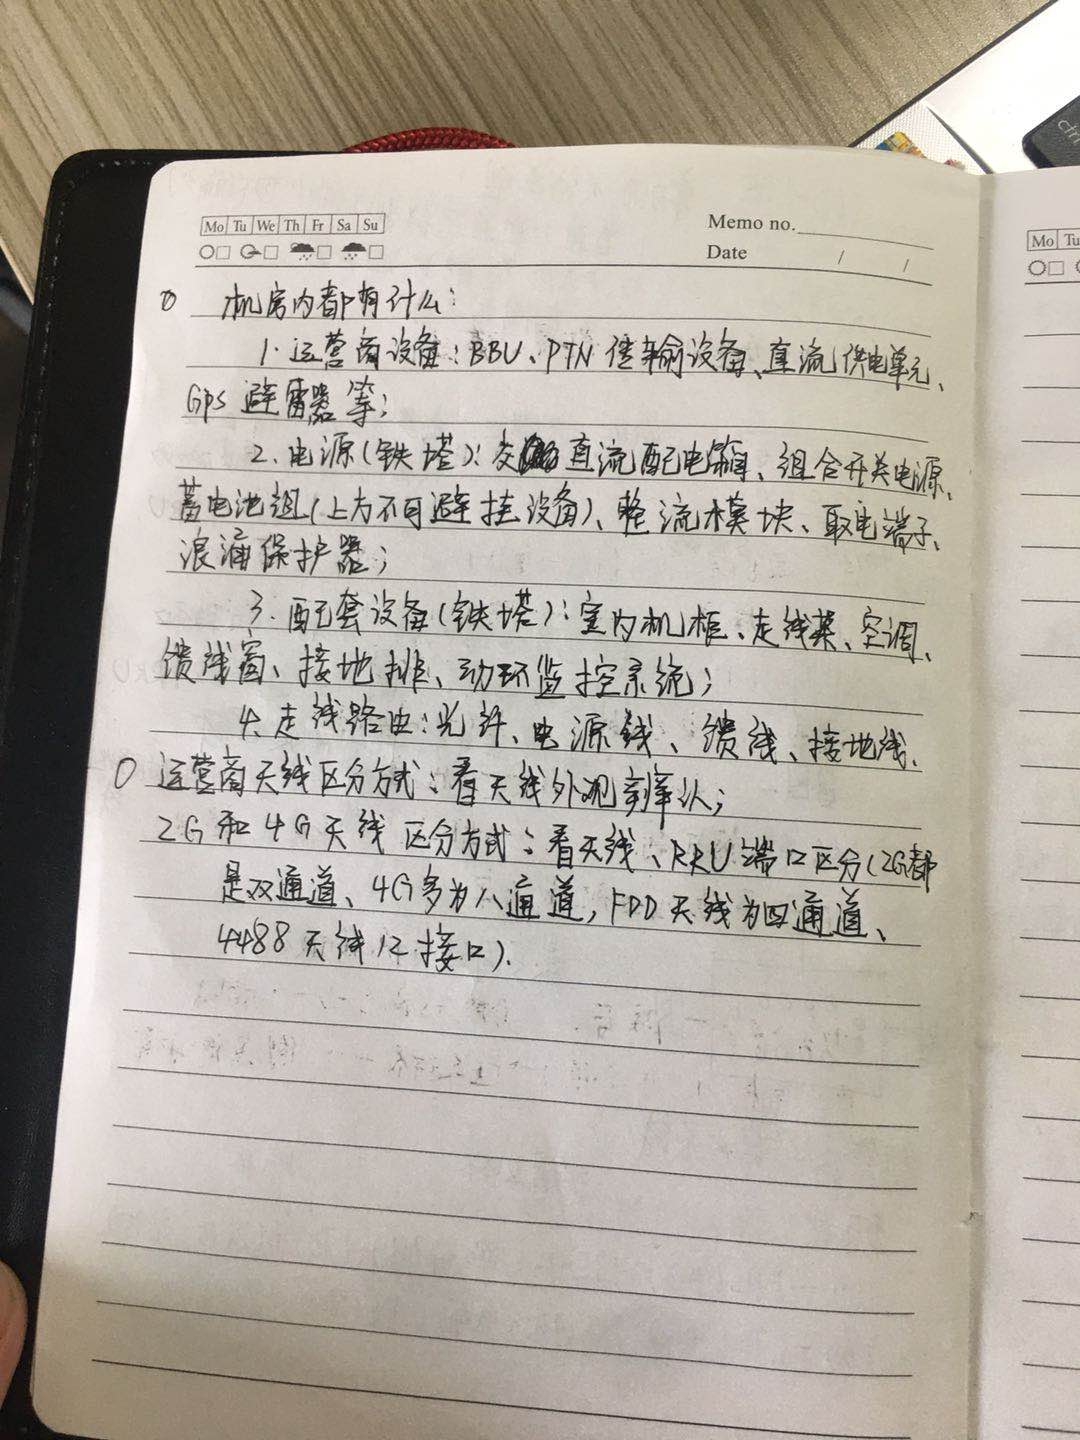 Mo Tu We Th Fr Sa Su
Memo no.
Date / /
机房内都有什么:
1.运营商设备:BBU、PTN传输设备、直流供电单元、
GPS避雷器等;
2.电源(铁塔):交直流配电箱、组合开关电源、
蓄电池组(上方不可避挂设备)、整流模块、取电端子、
浪涌保护器;
3.配套设备(铁塔):室内机柜、走线架、空调、
馈线窗、接地排、动环监控系统;
4.走线路由:光纤、电源线、馈线、接地线.
运营商天线区分方式:看天线外观辨认;
2G和4G天线区分方式:看天线、RRU端口区分(2G都
是双通道、4G多为八通道,FDD天线为四通道、
4488天线12接口).
Mo Tu
ctrl